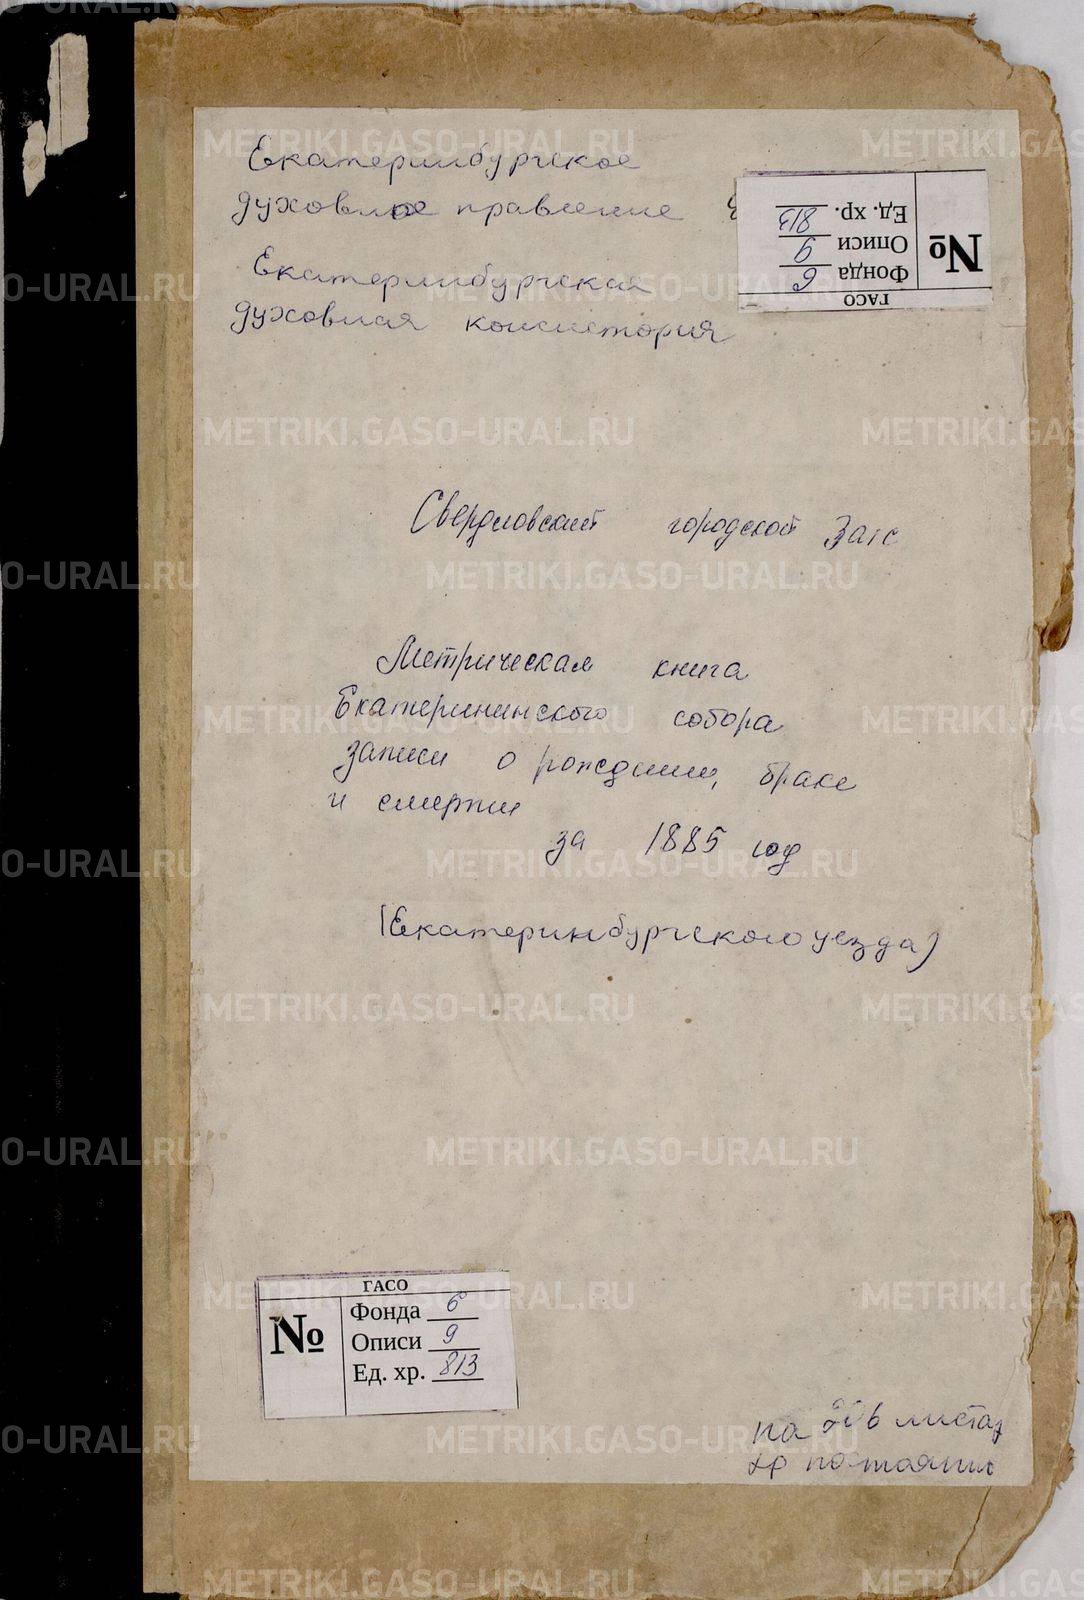 Екатеринбургское
духовное правление
Екатеринбургская
духовная консистория
ГАСО
№
Фонда 6
Описи 9
Ед. хр. 813
Свердловский городской Загс
Метрическая книга
Екатерининского собора
записи о рождении, браке
и смерти
за 1885 год
(Екатеринбургского уезда)
ГАСО
№
Фонда 6
Описи 9
Ед. хр. 813
на листах
хр постоянно
METRIKI.GASO-URAL.RU